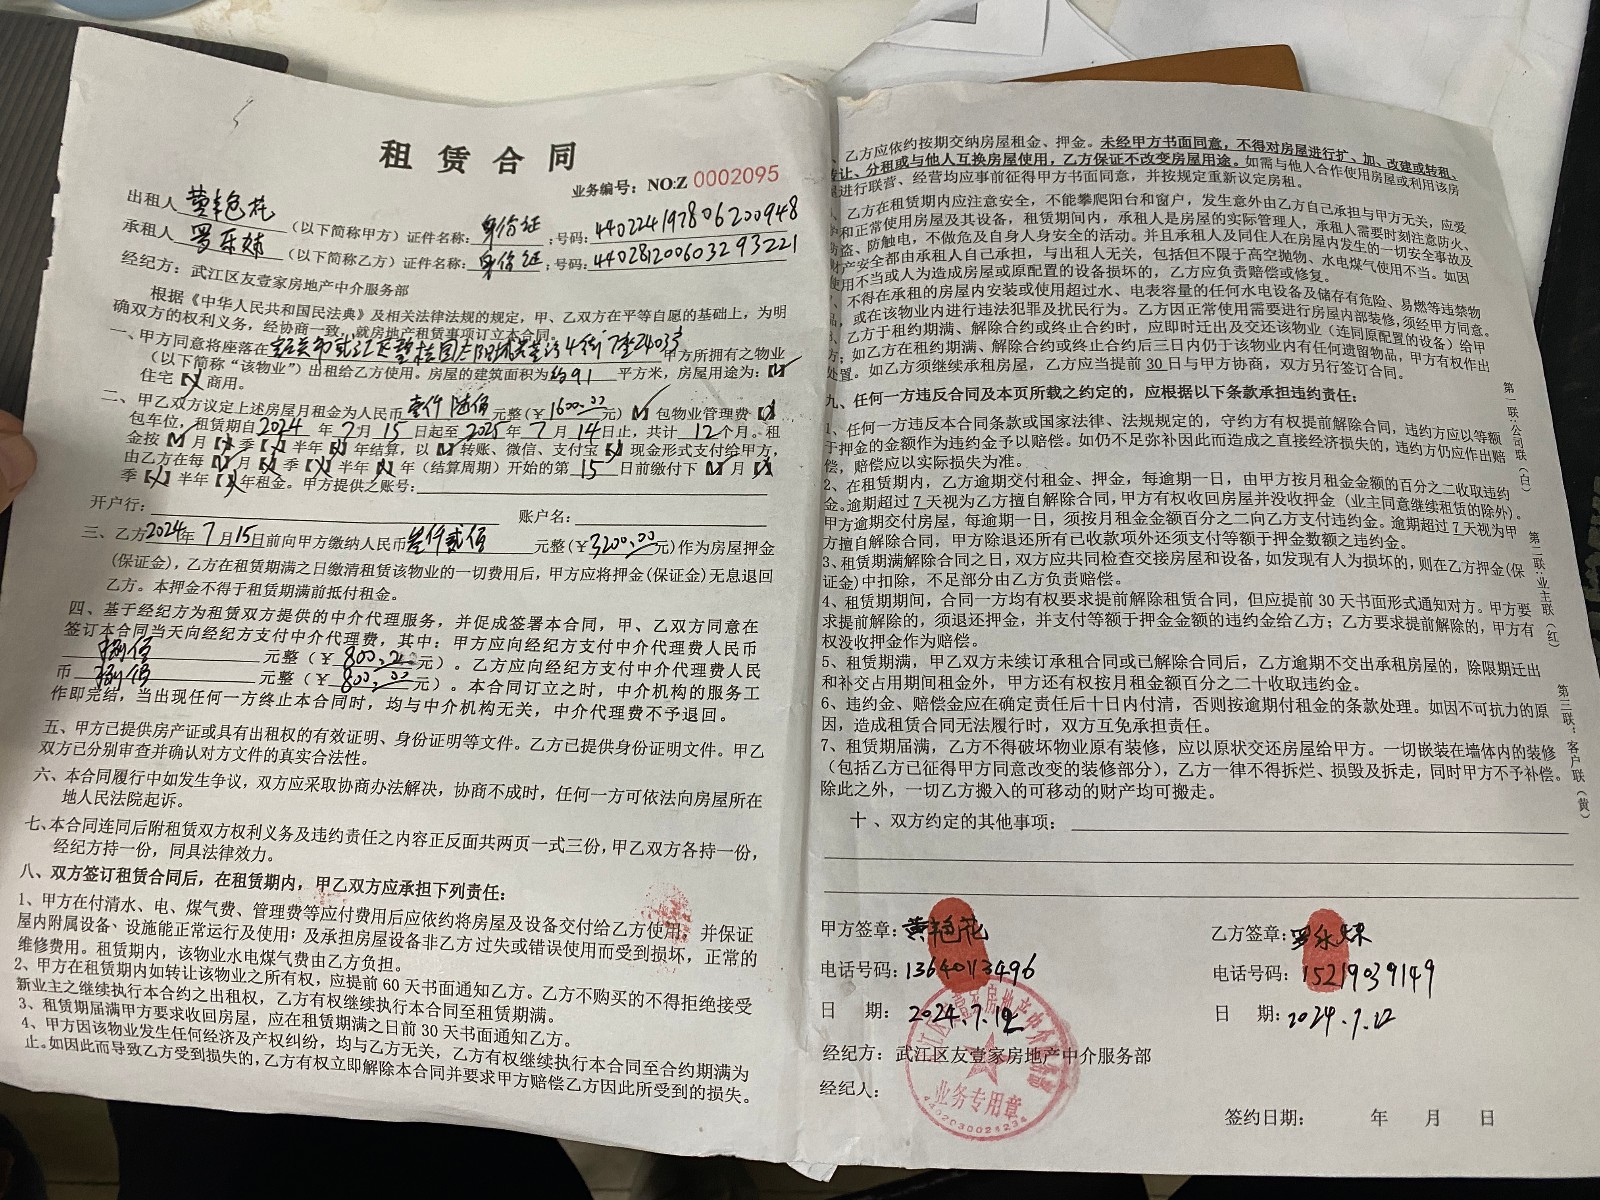 租赁合同
业务编号：NO:Z 0002095
出租人 黄艳花 （以下简称甲方）证件名称：身份证；号码：440224197806200948
承租人 罗 （以下简称乙方）证件名称：身份证；号码：440281200603293221
经纪方：武江区友壹家房地产中介服务部
根据《中华人民共和国民法典》及相关法律法规的规定，甲、乙双方在平等自愿的基础上，为明
确双方的权利义务，经协商一致，就房地产租赁事项订立本合同。
一、甲方同意将座落在韶关市武江区碧桂园太阳城 4街7座2403房 甲方所拥有之物业
（以下简称“该物业”）出租给乙方使用。房屋的建筑面积为约91 平方米，房屋用途为：【✓】
住宅【X】商用。
二、甲乙双方议定上述房屋月租金为人民币 壹仟陆佰 元整（￥1600.00元）【✓】包物业管理费【X】
包车位，租赁期自2024 年 7 月 15 日起至 2025 年 7 月 14 日止，共计 12 个月。租
金按【✓】月【X】季【X】半年【X】年结算，以【✓】转账、微信、支付宝【X】现金形式支付给甲方，
由乙方在每【✓】月【X】季【X】半年【X】年（结算周期）开始的第 15 日前缴付下【✓】月【X】
季【X】半年【X】年租金。甲方提供之账号：
开户行： 账户名：
三、乙方2024年 7 月15日前向甲方缴纳人民币叁仟贰佰 元整（￥3200.00元）作为房屋押金
（保证金），乙方在租赁期满之日缴清租赁该物业的一切费用后，甲方应将押金（保证金）无息退回
乙方。本押金不得于租赁期满前抵付租金。
四、基于经纪方为租赁双方提供的中介代理服务，并促成签署本合同，甲、乙双方同意在
签订本合同当天向经纪方支付中介代理费，其中：甲方应向经纪方支付中介代理费人民币
捌佰 元整（￥800.00元）。乙方应向经纪方支付中介代理费人民
币 捌佰 元整（￥800.00元）。本合同订立之时，中介机构的服务工
作即完结，当出现任何一方终止本合同时，均与中介机构无关，中介代理费不予退回。
五、甲方已提供房产证或具有出租权的有效证明、身份证明等文件。乙方已提供身份证明文件。甲乙
双方已分别审查并确认对方文件的真实合法性。
六、本合同履行中如发生争议，双方应采取协商办法解决，协商不成时，任何一方可依法向房屋所在
地人民法院起诉。
七、本合同连同后附租赁双方权利义务及违约责任之内容正反面共两页一式三份，甲乙双方各持一份，
经纪方持一份，同具法律效力。
八、双方签订租赁合同后，在租赁期内，甲乙双方应承担下列责任：
1、甲方在付清水、电、煤气费、管理费等应付费用后应依约将房屋及设备交付给乙方使用，并保证
屋内附属设备、设施能正常运行及使用；及承担房屋设备非乙方过失或错误使用而受到损坏，正常的
维修费用。租赁期内，该物业水电煤气费由乙方负担。
2、甲方在租赁期内如转让该物业之所有权，应提前60天书面通知乙方。乙方不购买的不得拒绝接受
新业主之继续执行本合约之出租权，乙方有权继续执行本合同至租赁期满。
3、租赁期届满甲方要求收回房屋，应在租赁期满之日前30天书面通知乙方。
4、甲方因该物业发生任何经济及产权纠纷，均与乙方无关，乙方有权继续执行本合同至合约期满为
止。如因此而导致乙方受到损失的，乙方有权立即解除本合同并要求甲方赔偿乙方因此所受到的损失。
、乙方应依约按期交纳房屋租金、押金。未经甲方书面同意，不得对房屋进行扩、加、改建或转租、
转让、分租或与他人互换房屋使用，乙方保证不改变房屋用途。如需与他人合作使用房屋或利用该房
屋进行联营、经营均应事前征得甲方书面同意，并按规定重新议定房租。
、乙方在租赁期内应注意安全，不能攀爬阳台和窗户，发生意外由乙方自己承担与甲方无关，应爱
护和正常使用房屋及其设备，租赁期间内，承租人是房屋的实际管理人，承租人需要时刻注意防火、
防盗、防触电，不做危及自身人身安全的活动。并且承租人及同住人在房屋内发生的一切安全事故及
财产安全都由承租人自己承担，与出租人无关，包括但不限于高空抛物、水电煤气使用不当。如因
使用不当或人为造成房屋或原配置的设备损坏的，乙方应负责赔偿或修复。
、不得在承租的房屋内安装或使用超过水、电表容量的任何水电设备及储存有危险、易燃等违禁物
品，或在该物业内进行违法犯罪及扰民行为。乙方因正常使用需要进行房屋内部装修，须经甲方同意。
、乙方于租约期满、解除合约或终止合约时，应即时迁出及交还该物业（连同原配置的设备）给甲
方；如乙方在租约期满、解除合约或终止合约后三日内仍于该物业内有任何遗留物品，甲方有权作出
处置。如乙方须继续承租房屋，乙方应当提前30日与甲方协商，双方另行签订合同。
九、任何一方违反合同及本页所载之约定的，应根据以下条款承担违约责任：
1、任何一方违反本合同条款或国家法律、法规规定的，守约方有权提前解除合同，违约方应以等额
于押金的金额作为违约金予以赔偿。如仍不足弥补因此而造成之直接经济损失的，违约方仍应作出赔
偿，赔偿应以实际损失为准。
2、在租赁期内，乙方逾期交付租金、押金，每逾期一日，由甲方按月租金金额的百分之二收取违约
金。逾期超过7天视为乙方擅自解除合同，甲方有权收回房屋并没收押金（业主同意继续租赁的除外）。
甲方逾期交付房屋，每逾期一日，须按月租金金额百分之二向乙方支付违约金。逾期超过7天视为甲
方擅自解除合同，甲方除退还所有已收款项外还须支付等额于押金数额之违约金。
3、租赁期满解除合同之日，双方应共同检查交接房屋和设备，如发现有人为损坏的，则在乙方押金（保
证金）中扣除，不足部分由乙方负责赔偿。
4、租赁期期间，合同一方均有权要求提前解除租赁合同，但应提前30天书面形式通知对方。甲方要
求提前解除的，须退还押金，并支付等额于押金金额的违约金给乙方；乙方要求提前解除的，甲方有
权没收押金作为赔偿。
5、租赁期满，甲乙双方未续订承租合同或已解除合同后，乙方逾期不交出承租房屋的，除限期迁出
和补交占用期间租金外，甲方还有权按月租金额百分之二十收取违约金。
6、违约金、赔偿金应在确定责任后十日内付清，否则按逾期付租金的条款处理。如因不可抗力的原
因，造成租赁合同无法履行时，双方互免承担责任。
7、租赁期届满，乙方不得破坏物业原有装修，应以原状交还房屋给甲方。一切嵌装在墙体内的装修
（包括乙方已征得甲方同意改变的装修部分），乙方一律不得拆烂、损毁及拆走，同时甲方不予补偿。
除此之外，一切乙方搬入的可移动的财产均可搬走。
十、双方约定的其他事项：
第一联：公司联（白）
第二联：业主联（红）
第三联：客户联（黄）
甲方签章：黄艳花 乙方签章：罗
电话号码：13640113496 电话号码：15219039149
日 期：2024.7.12 日 期：2024.7.12
经纪方：武江区友壹家房地产中介服务部
经纪人：
业务专用章
签约日期： 年 月 日